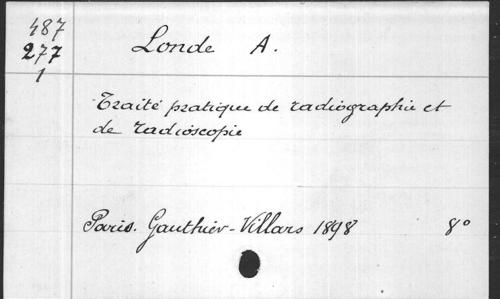 487
277
1
Londe A.
Traité pratique de radiographie et
de radioscopie
Paris. Gauthier-Villars 1898 8°